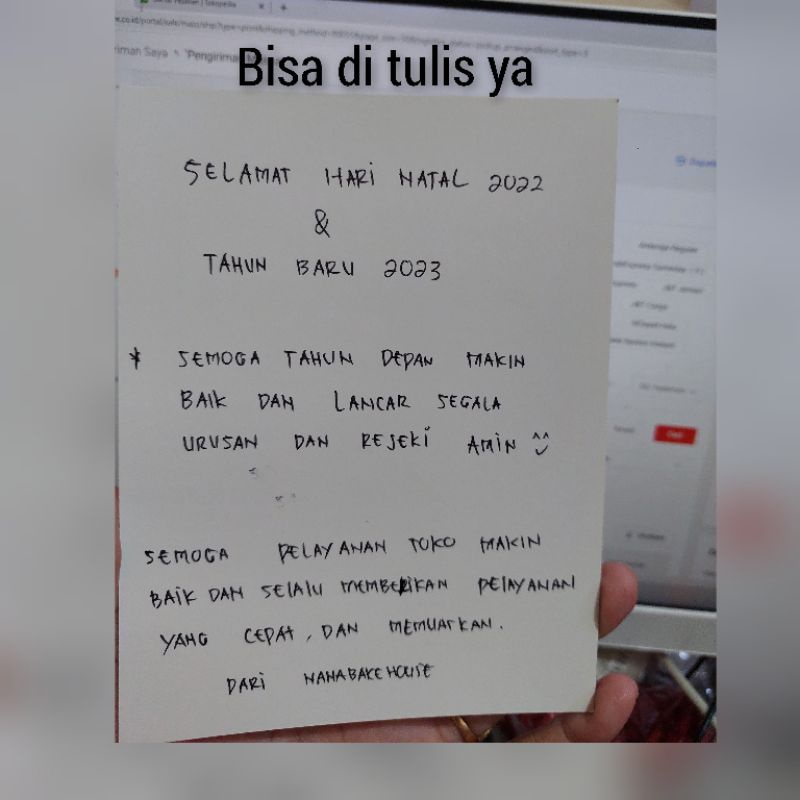 Bisa di tulis ya
SELAMAT HARI NATAL 2022
&
TAHUN BARU 2023
* SEMOGA TAHUN DEPAN MAKIN
BAIK DAN LANCAR SEGALA
URUSAN DAN REJEKI AMIN ^^
SEMOGA PELAYANAN TOKO MAKIN
BAIK DAN SELALU MEMBERIKAN PELAYANAN
YANG CEPAT, DAN MEMUASKAN.
DARI NANABAKEHOUSE